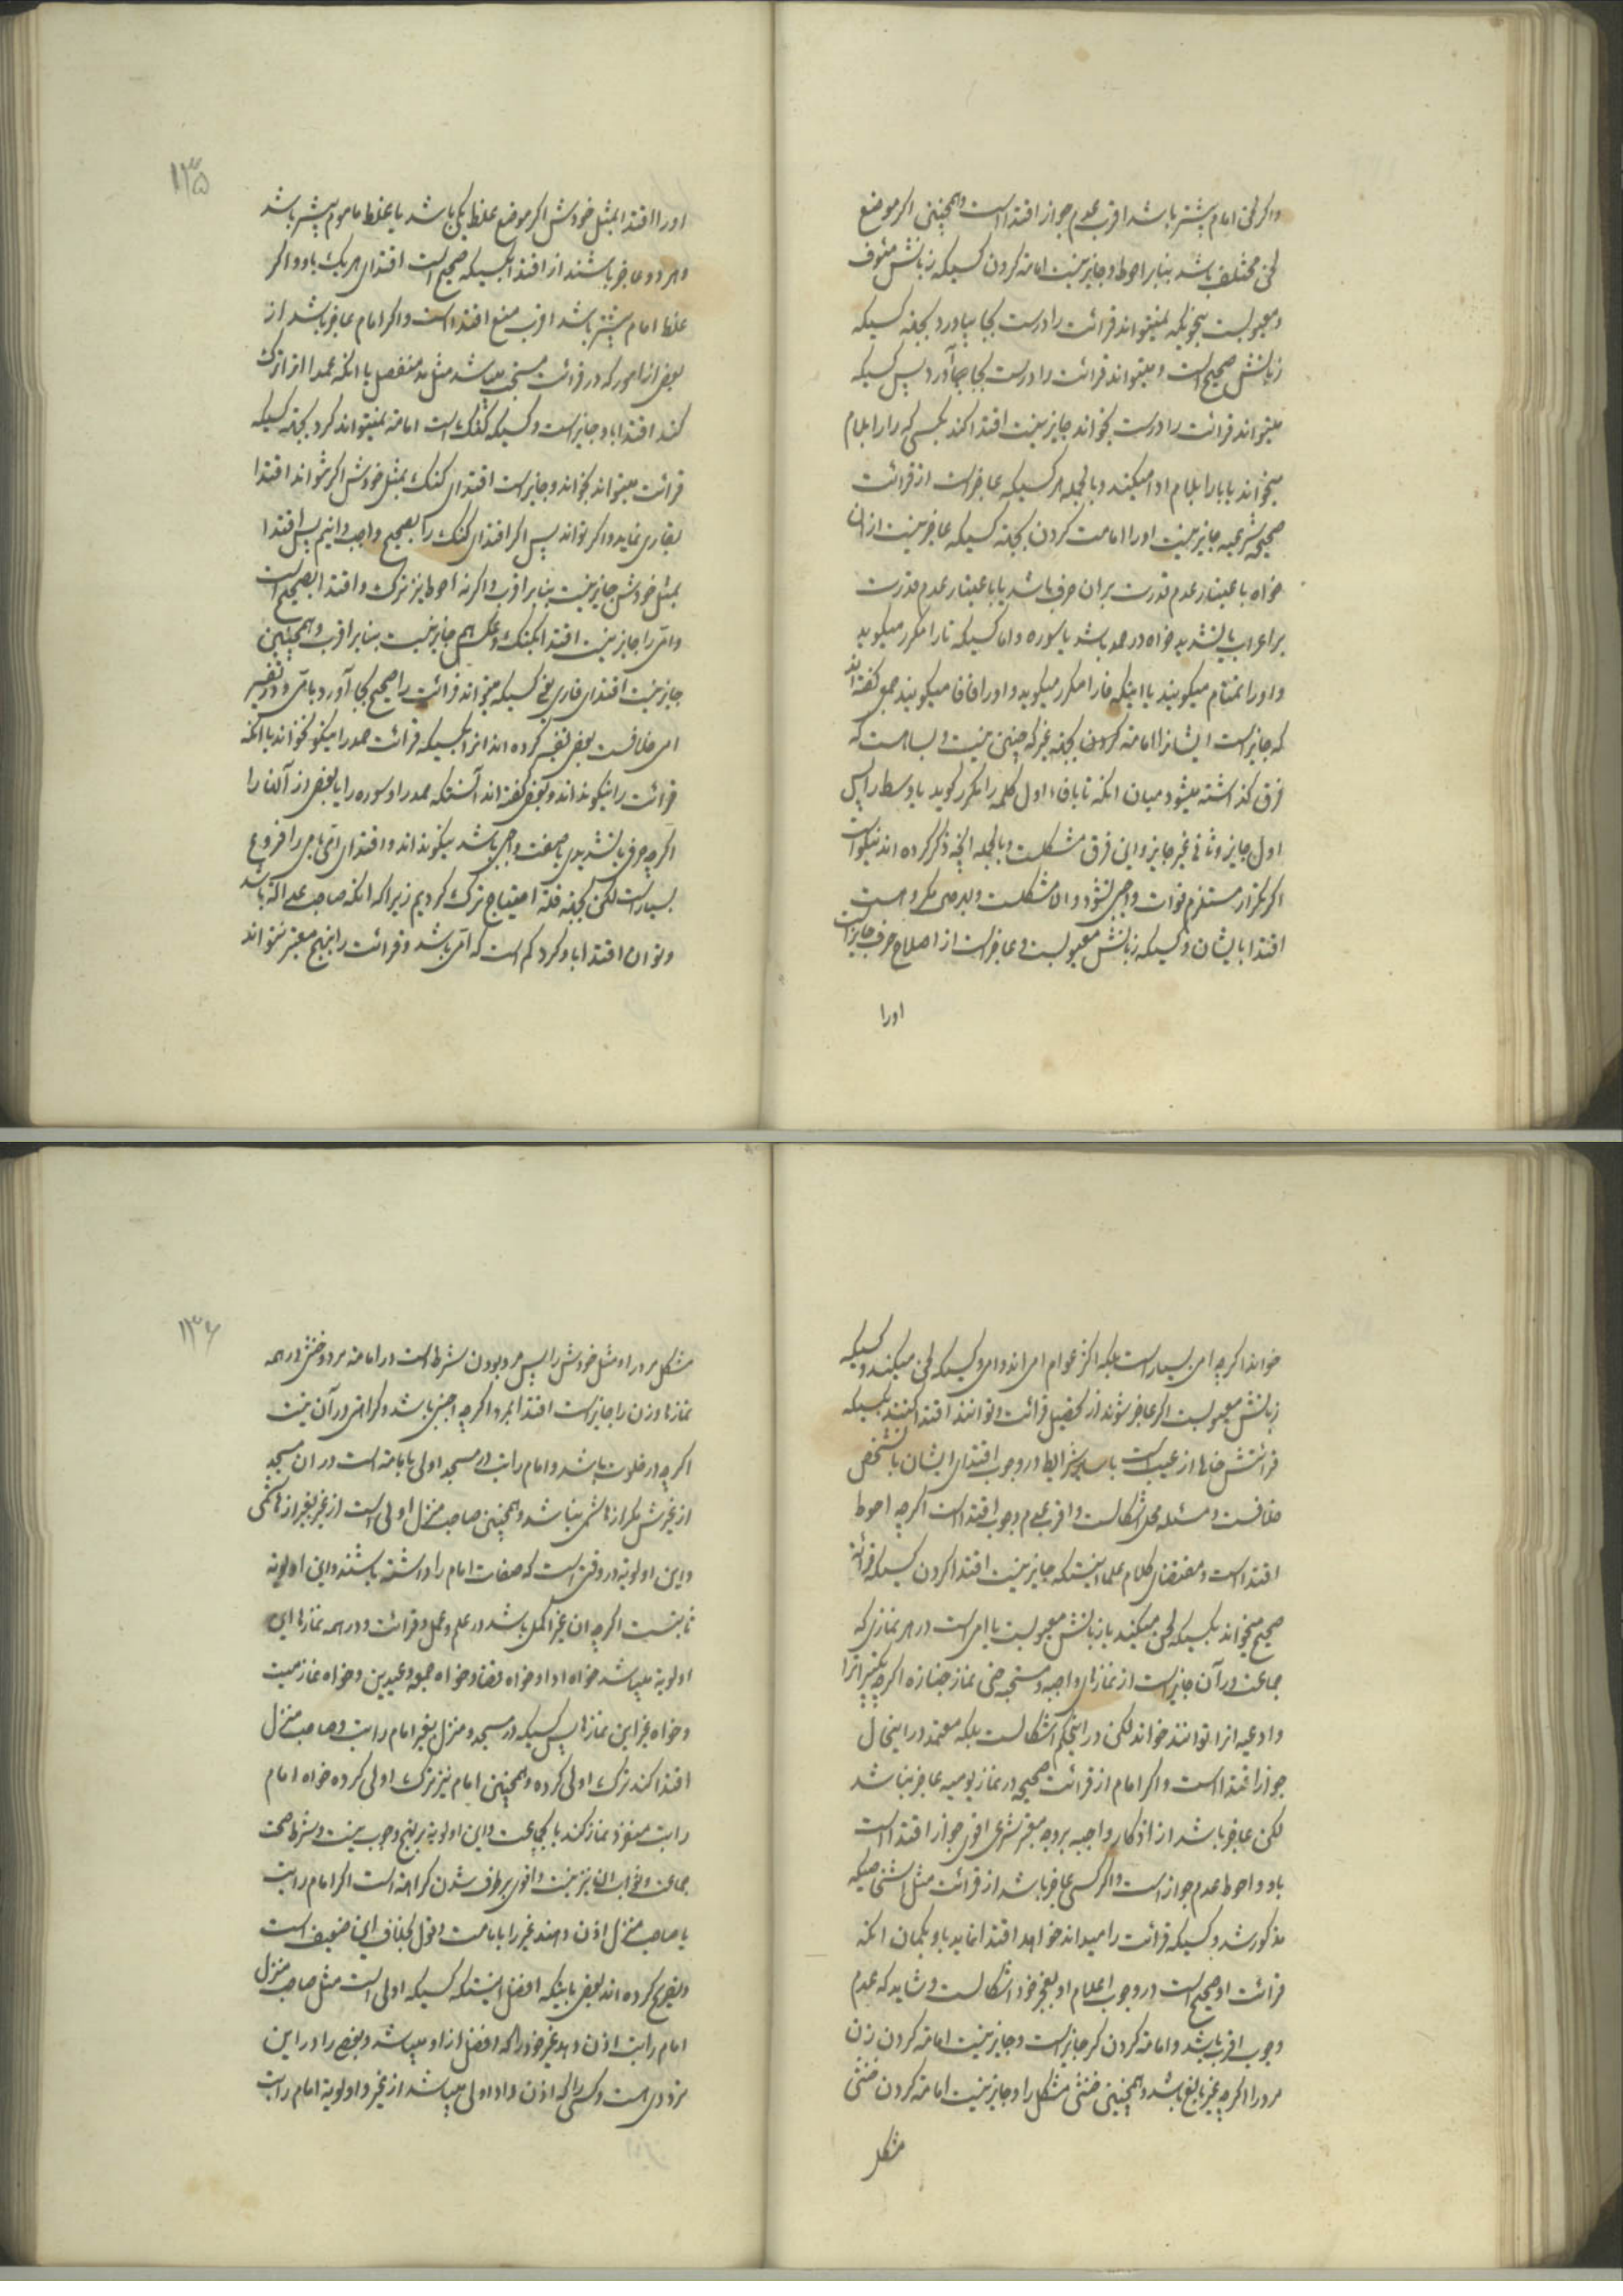 واکر لحن امام پیشتر باشد اقرب عدم جواز اقتدا است وهمچنین اکر موضع
لحن مختلف باشد بنابر احوط وجایز نیست امامته کردن کسیکه زبانش مئوف
ومعیوبست بنحویکه نمیتواند قرائت را درست بجا بیاورد بجهته کسیکه
زبانش صحیح است ومیتواند قرائت را درست بجا آورد پس کسیکه
میتواند قرائت را درست بخواند جایز نیست اقتدا کند بکسی که را را بلام
میخواند یا با را بلام ادا میکند وبالجمله هر کسیکه عاجز است از قرائت
صحیحه شرعیه جایز نیست او را امامت کردن بجهته کسیکه عاجز نیست از ان
خواه باعتبار عدم قدرت بران حرف باشد یا باعتبار عدم قدرت
بر اعراب یا تشدید خواه در حمد باشد یا سوره واما کسیکه تا را مکرر میکوید
واورا تمتام میکویند یا اینکه فا را مکرر میکوید واورا فافا میکویند جمعی کفته اند
که جایز است ایشانرا امامته کردن بجهته غیر که چنین نیست وبسا هست که
فرق کذاشته میشود میان انکه تا یا فاء اول کلمه را مکرر کوید یا وسط را پس
اول جایز وثانی غیر جایز واین فرق مشکلست وبالجمله انچه ذکر کرده اند نیکو است
اکر تکرار مستلزم فوات واجبی نشود والا مشکلست وابرص مکروهست
اقتدا بایشان وکسیکه زبانش معیوبست وعاجز است از اصلاح حرف جایز است
اورا
۱۳۵
اورا اقتدا بمثل خودش اکر موضع غلط یکی باشد یا غلط ماموم پیشتر باشد
وهر دو عاجز باشند از اقتدا بکسیکه صحیح است اقتدای هر یک باو واکر
غلط امام پیشتر باشد اقرب منع اقتدا است واکر امام عاجز باشد از
بعض از امور که در قرائت مستحب میباشد مثل مد منفصل یا انکه عمدا انرا ترک
کند اقتدا باو جایز است وکسیکه کنک است امامته نمیتواند کرد بجهته کسیکه
قرائت میتواند بخواند وجایز است اقتدای کنک بمثل خودش اکر نتواند اقتدا
بقاری نماید واکر تواند پس اکر اقتدای کنک را بصحیح واجب دانیم پس اقتدا
بمثل خودش جایز نیست بنابر اقرب واکر نه احوط نیز ترک واقتدا بصحیح است
وامی را جایز نیست اقتدا بکنک وعکس هم جایز نیست بنابر اقرب وهمچنین
جایز نیست اقتدای قاری یعنی کسیکه میتواند قرائت را صحیح بجا آورد بامی ودر تفسیر
امی خلافست بعض تفسیر کرده اند انرا بکسیکه قرائت حمد را نیکو نخواند یا انکه
قرائت را نیکو نداند وبعض کفته اند آنستکه حمد را وسوره را یا بعض از آنها را
اکرچه حرف یا تشدیدی یا صفت واجبی باشد نیکو نداند واقتدای امی بامی را فروع
بسیار است لکن بجهته قلة احتیاج ترک کردیم زیراکه انکه صاحب عدالة باشد
وتوان اقتدا باو کرد کم است که امی باشد وقرائت را بنهج معتبر نتواند
خواند اکرچه امی بسیار است بلکه اکثر عوام امی اند وامی وکسیکه لحن میکند وکسیکه
زبانش معیوبست اکر عاجز شوند از تحصیل قرائت وتوانند اقتدا کنند بکسیکه
قرائتش خالی از عیب است با سایر شرایط در وجوب اقتدای ایشان بانشخص
خلافست ومسئله محل اشکالست واقرب عدم وجوب اقتدا است اکرچه احوط
اقتدا است ومقتضای کلام علما اینستکه جایز نیست اقتدا کردن کسیکه قرائة
صحیح میخواند بکسیکه لحن میکند یا زبانش معیوبست یا امی است در هر نمازی که
جماعت در آن جایز است از نمازهای واجبه ومستحبه حتی نماز جنازه اکرچه تکبیر انرا
وادعیه انرا توانند خواند لکن در اینحکم اشکالست بلکه معتمد در اینحال
جواز اقتدا است واکر امام از قرائت صحیحه در نماز یومیه عاجز نباشد
لکن عاجز باشد از اذکار واجبه بر وجه معتبر شرعی اقوی جواز اقتدا است
باو واحوط عدم جواز است واکر کسی عاجز باشد از قرائت مثل اشخاصیکه
مذکور شد وکسیکه قرائت را میداند خواهد اقتدا نماید باو بکمان انکه
قرائت او صحیح است در وجوب اعلام او بعجز خود اشکالست وشاید که عدم
وجوب اقرب باشد وامامته کردن کر جایز است وجایز نیست امامته کردن زن
مرد را اکرچه غیر بالغ باشد وهمچنین خنثی مشکل را وجایز نیست امامته کردن خنثی
مشکل
۱۳۶
مشکل مرد را ومثل خودش را پس مرد بودن شرط است در امامته مرد وخنثی در همه
نمازها وزن را جایز است اقتدا بمرد اکرچه اجنبی باشد وکراهتی در آن نیست
اکرچه در خلوت باشد وامام راتب در مسجد اولی بامامته است در ان مسجد
از غیرش مکر از هاشمی نباشد وهمچنین صاحب منزل اولی است از غیر بغیر از هاشمی
واین اولویة در وقتی است که صفات امام را داشته باشند واین اولویة
ثابتست اکرچه ان غیر اکمل باشد در علم وعمل وقرائت ودر همه نمازها این
اولویة میباشد خواه ادا وخواه قضا وخواه جمعه وعیدین وخواه نماز میت
وخواه غیر این نمازها پس کسیکه در مسجد ومنزل بغیر امام راتب وصاحب منزل
اقتدا کند ترک اولی کرده وهمچنین امام نیز ترک اولی کرده خواه امام
راتب منفرد نماز کند یا بجماعت واین اولویة بر نهج وجوب نیست وشرط صحت
جماعت وثواب ان نیز نیست واقوی برطرف شدن کراهة است اکر امام راتب
یا صاحب منزل اذن دهند غیر را بامامت وقول بخلاف این ضعیف است
وتصریح کرده اند بعض باینکه افضل اینستکه کسیکه اولی است مثل صاحب منزل
امام راتب اذن دهد غیر خود را که افضل از او میباشد وبعضی را در این
تردد است وکسی را که اذن داد اولی میباشد از غیر واولویة امام راتب